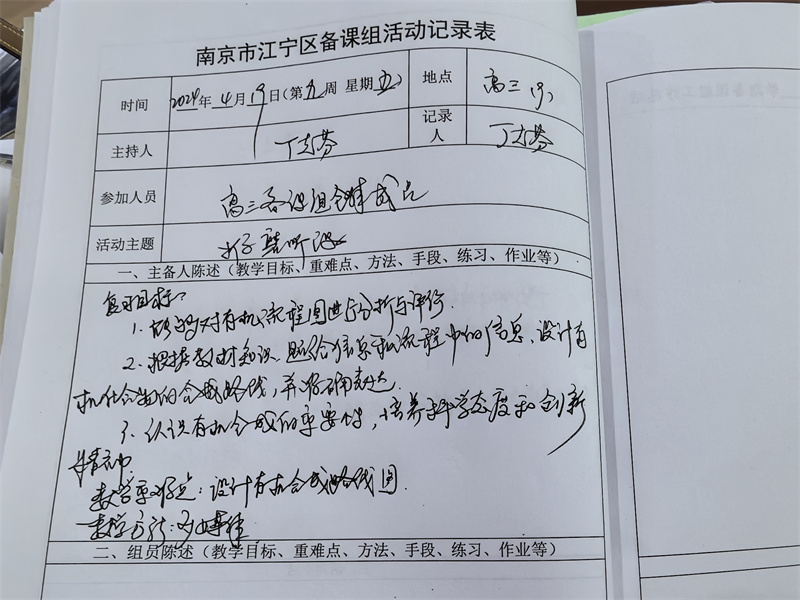 南京市江宁区备课组活动记录表
时间 2024年4月19日(第九周 星期五) 地点 高三(9)
主持人 丁志芬 记录人 丁志芬
参加人员 高三备课组全体成员
活动主题
一、主备人陈述(教学目标、重难点、方法、手段、练习、作业等)
复习目标:
1. 能够对有机流程图进行分析与评价.
2. 根据教材知识、题给信息和流程中的信息,设计有
机化合物的合成路线,并准确表达.
3. 认识有机合成的重要性,培养科学态度和创新
精神.
教学重难点:设计有机合成路线图.
教学方法:多媒体
二、组员陈述(教学目标、重难点、方法、手段、练习、作业等)